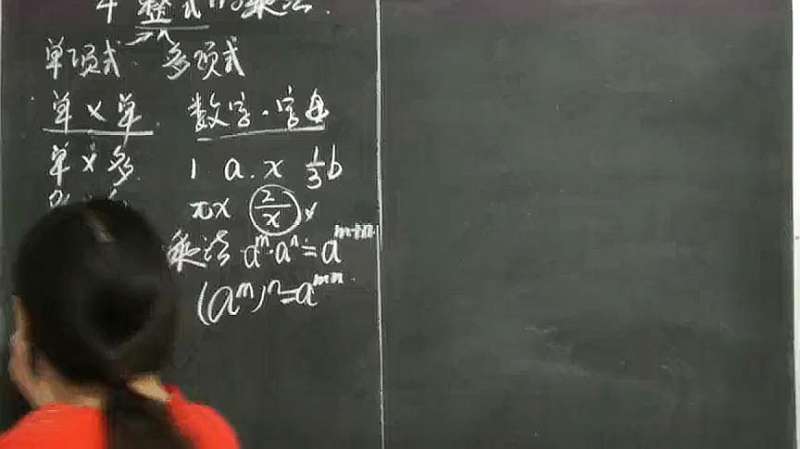 整式的乘法.
单项式 多项式
单×单 数字·字母
单×多 1 a. x 1/3 b
πx 2/x ×
乘法 a^m·a^n=a^{m+n}
(a^m)^n=a^{mn}